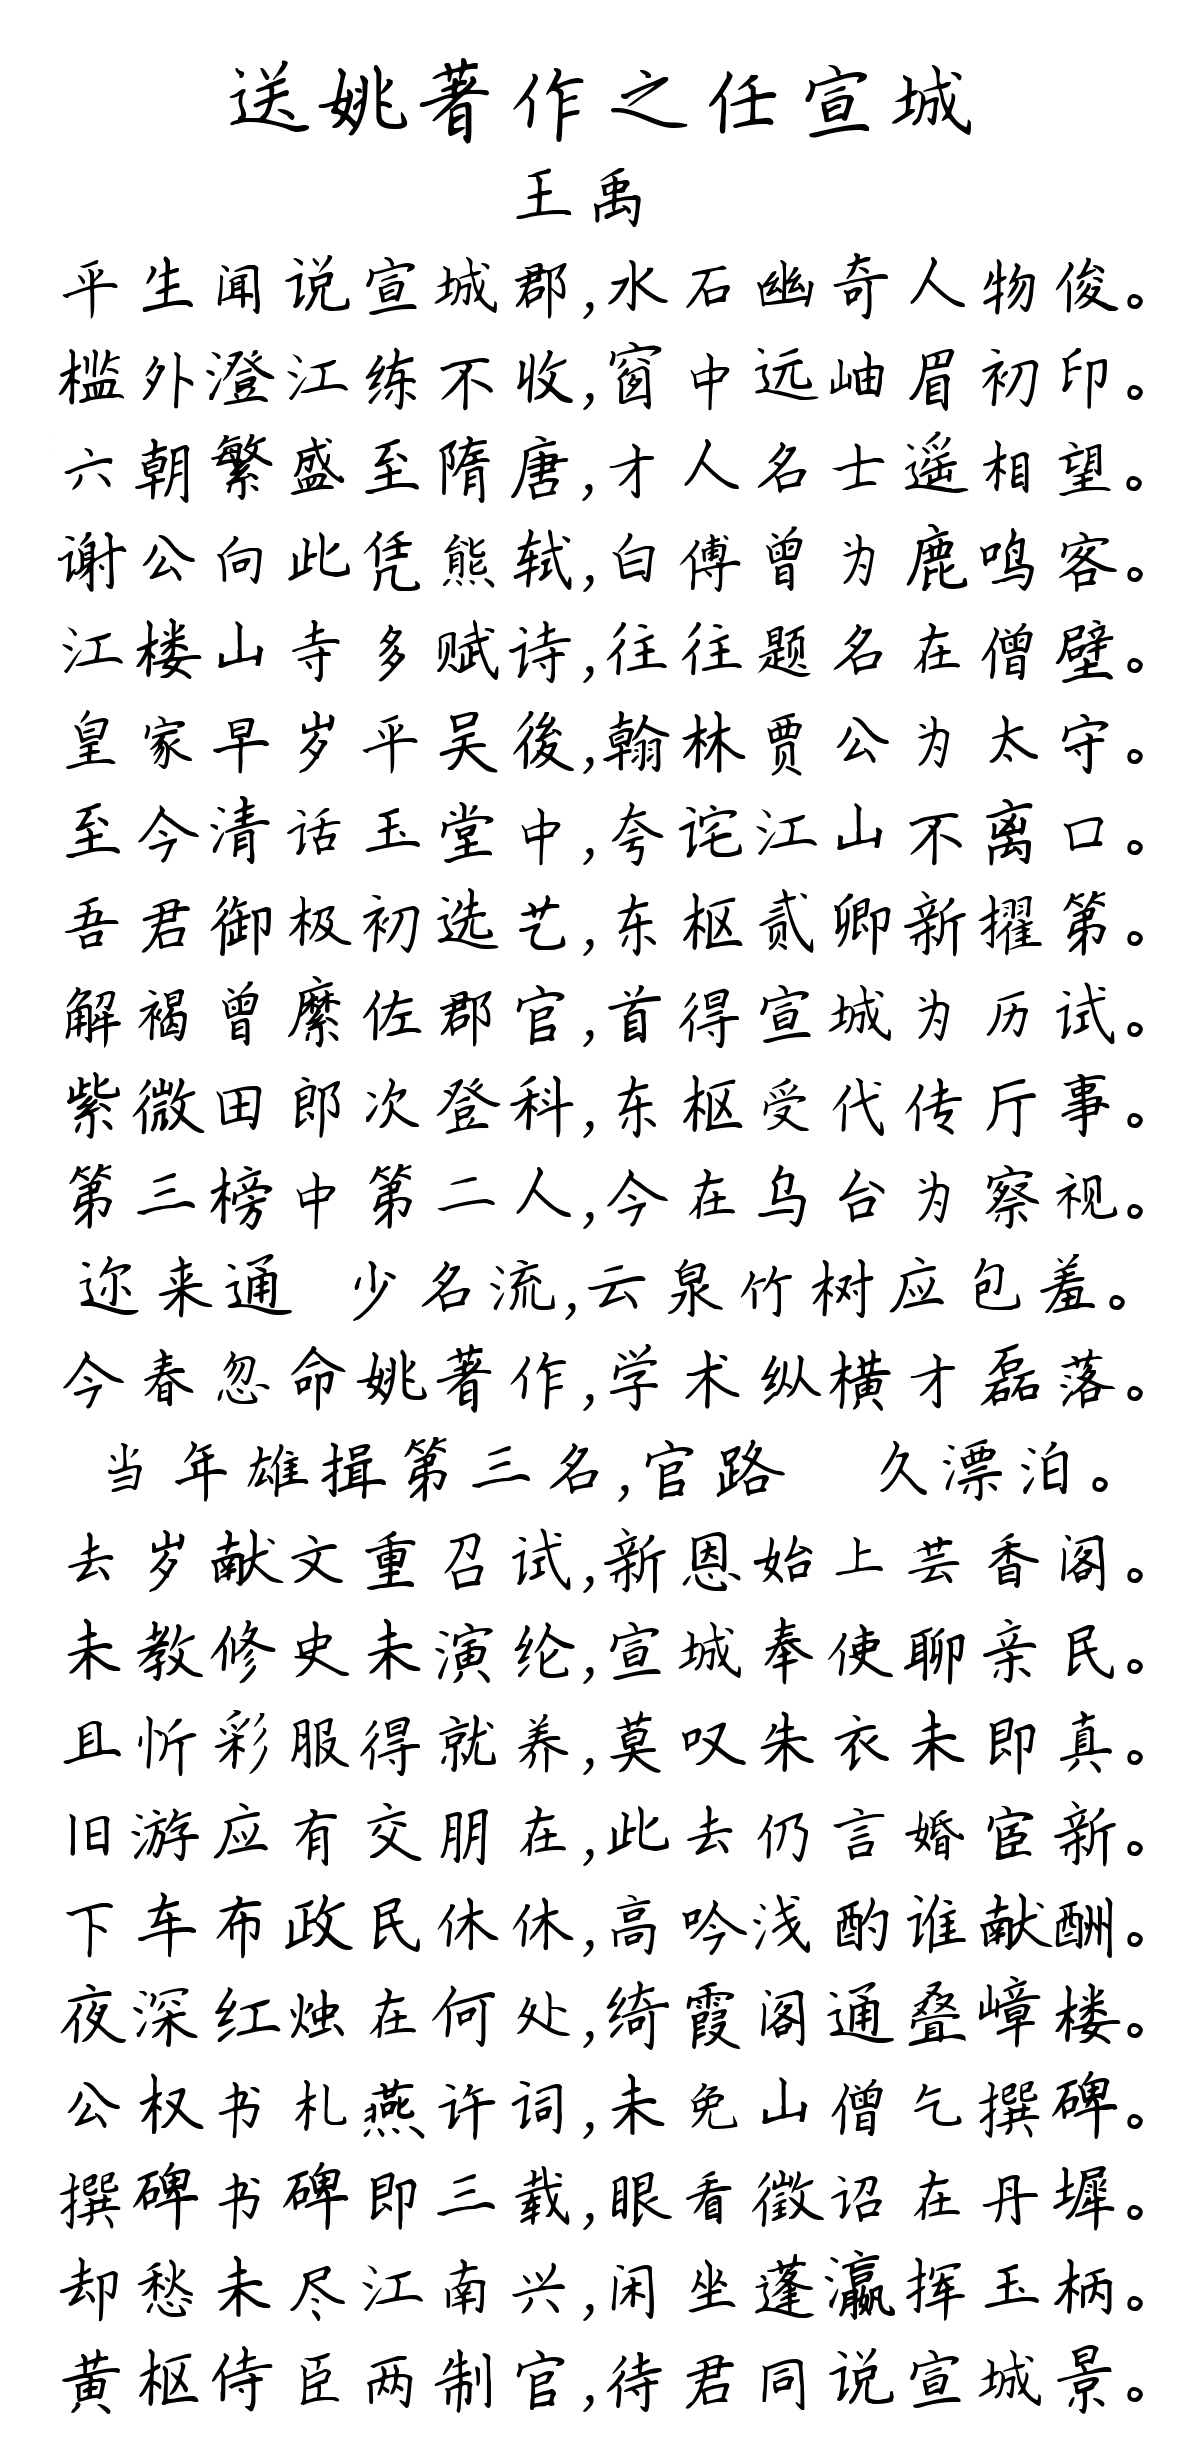 送姚著作之任宣城
王禹
平生闻说宣城郡,水石幽奇人物俊。
槛外澄江练不收,窗中远岫眉初印。
六朝繁盛至隋唐,才人名士遥相望。
谢公向此凭熊轼,白傅曾为鹿鸣客。
江楼山寺多赋诗,往往题名在僧壁。
皇家早岁平吴後,翰林贾公为太守。
至今清话玉堂中,夸诧江山不离口。
吾君御极初选艺,东枢贰卿新擢第。
解褐曾縻佐郡官,首得宣城为历试。
紫微田郎次登科,东枢受代传厅事。
第三榜中第二人,今在乌台为察视。
迩来通 少名流,云泉竹树应包羞。
今春忽命姚著作,学术纵横才磊落。
当年雄揖第三名,官路 久漂泊。
去岁献文重召试,新恩始上芸香阁。
未教修史未演纶,宣城奉使聊亲民。
且忻彩服得就养,莫叹朱衣未即真。
旧游应有交朋在,此去仍言婚宦新。
下车布政民休休,高吟浅酌谁献酬。
夜深红烛在何处,绮霞阁通叠嶂楼。
公权书札燕许词,未免山僧乞撰碑。
撰碑书碑即三载,眼看徵诏在丹墀。
却愁未尽江南兴,闲坐蓬瀛挥玉柄。
黄枢侍臣两制官,待君同说宣城景。